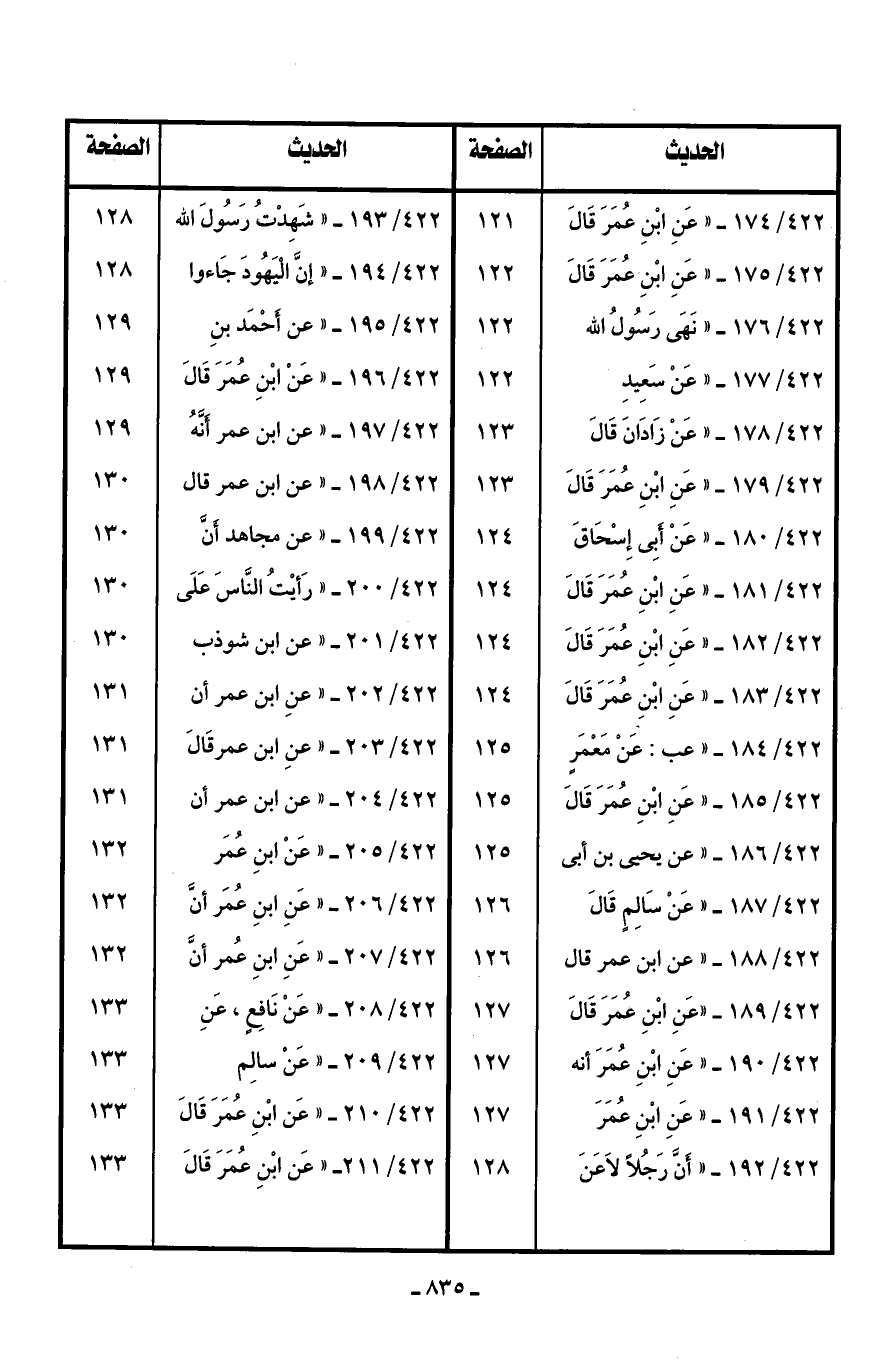 الحديث الصفحة الحديث الصفحة
٤٢٢/ ١٧٤ ـ « عَنِ ابْنِ عُمَرَ قَالَ ١٢١
٤٢٢/ ١٧٥ ـ « عَنِ ابْنِ عُمَرَ قَالَ ١٢٢
٤٢٢/ ١٧٦ ـ « نَهَى رَسُولُ الله ١٢٢
٤٢٢/ ١٧٧ ـ « عَنْ سَعِيدِ ١٢٢
٤٢٢/ ١٧٨ ـ « عَنْ زَادَانَ قَالَ ١٢٣
٤٢٢/ ١٧٩ ـ « عَنِ ابْنِ عُمَرَ قَالَ ١٢٣
٤٢٢/ ١٨٠ ـ « عَنْ أَبِى إِسْحَاقَ ١٢٤
٤٢٢/ ١٨١ ـ « عَنِ ابْنِ عُمَرَ قَالَ ١٢٤
٤٢٢/ ١٨٢ ـ « عَنِ ابْنِ عُمَرَ قَالَ ١٢٤
٤٢٢/ ١٨٣ ـ « عَنِ ابْنِ عُمَرَ قَالَ ١٢٤
٤٢٢/ ١٨٤ ـ « عب : عَنْ مَعْمَرٍ ١٢٥
٤٢٢/ ١٨٥ ـ « عَنِ ابْنِ عُمَرَ قَالَ ١٢٥
٤٢٢/ ١٨٦ ـ « عن يحيى بن أبى ١٢٥
٤٢٢/ ١٨٧ ـ « عَنْ سَالِمٍ قَالَ ١٢٦
٤٢٢/ ١٨٨ ـ « عن ابن عمر قال ١٢٦
٤٢٢/ ١٨٩ ـ «عَنِ ابْنِ عُمَرَ قَالَ ١٢٧
٤٢٢/ ١٩٠ ـ « عَنِ ابْنِ عُمَرَ أنه ١٢٧
٤٢٢/ ١٩١ ـ « عَنِ ابْنِ عُمَرَ ١٢٧
٤٢٢/ ١٩٢ ـ « أَنَّ رَجُلاً لاَعَنَ ١٢٨
٤٢٢/ ١٩٣ ـ « شَهِدْتُ رَسُولَ الله ١٢٨
٤٢٢/ ١٩٤ ـ « إنَّ الْيَهُودَ جَاءوا ١٢٨
٤٢٢/ ١٩٥ ـ « عن أَحْمَد بنِ ١٢٩
٤٢٢/ ١٩٦ ـ « عَنْ ابْنِ عُمَرَ قَالَ ١٢٩
٤٢٢/ ١٩٧ ـ « عن ابن عمر أَنَّهُ ١٢٩
٤٢٢/ ١٩٨ ـ « عن ابن عمر قال ١٣٠
٤٢٢/ ١٩٩ ـ « عن مجاهد أَنَّ ١٣٠
٤٢٢/ ٢٠٠ ـ « رَأَيْتُ النَّاسَ عَلَى ١٣٠
٤٢٢/ ٢٠١ ـ « عن ابن شوذب ١٣٠
٤٢٢/ ٢٠٢ ـ « عنِ ابن عمر أن ١٣١
٤٢٢/ ٢٠٣ ـ « عنِ ابن عمرقَالَ ١٣١
٤٢٢/ ٢٠٤ ـ « عن ابن عمر أن ١٣١
٤٢٢/ ٢٠٥ ـ « عَنْ ابنِ عُمَر ١٣٢
٤٢٢/ ٢٠٦ ـ « عَنِ ابنِ عُمَر أنَّ ١٣٢
٤٢٢/ ٢٠٧ ـ « عَنِ ابنِ عُمر أنَّ ١٣٢
٤٢٢/ ٢٠٨ ـ « عَنْ نَافِعٍ ، عَنِ ١٣٣
٤٢٢/ ٢٠٩ ـ « عَنْ سالِم ١٣٣
٤٢٢/ ٢١٠ ـ « عَنِ ابْنِ عُمَرَ قَالَ ١٣٣
٤٢٢/ ٢١١ـ « عَنِ ابْنِ عُمَرَ قَالَ ١٣٣
ـ ٨٣٥ ـ